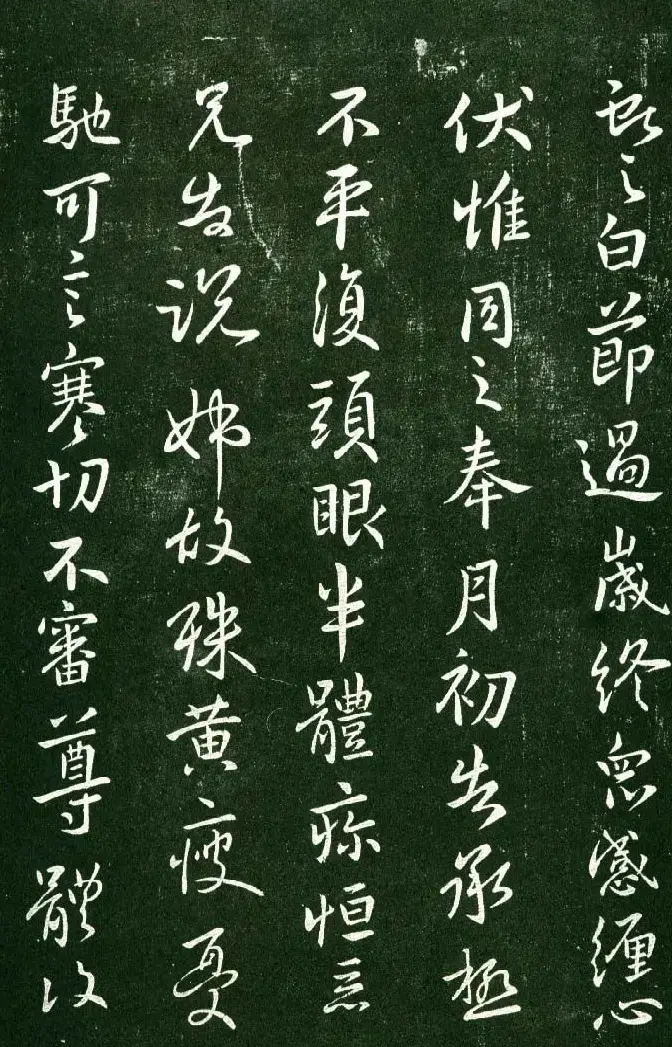 献之白節過歲終眾感纏心
伏惟同之奉月初告承極
不平復頭眼半體疼恒惡
兄告說姊故殊黃瘦憂
馳可言寒切不審尊體復